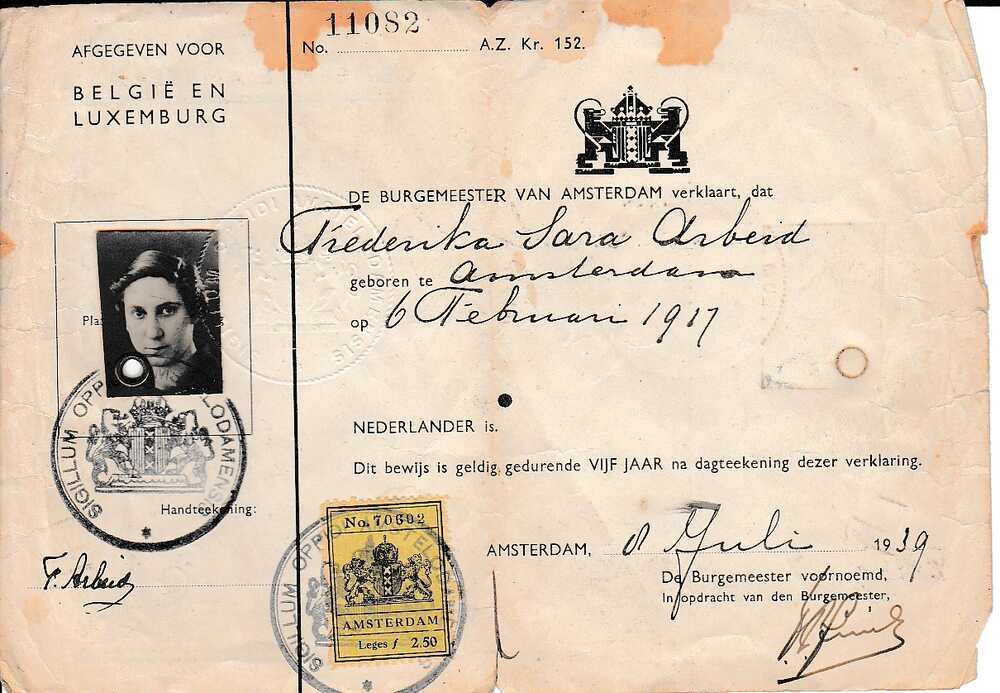 AFGEGEVEN VOOR
BELGIË EN
LUXEMBURG
No. 11082 A.Z. Kr. 152.
DE BURGEMEESTER VAN AMSTERDAM verklaart, dat
Frederika Sara Arbeid
geboren te Amsterdam
op 6 Februari 1917
NEDERLANDER is.
Dit bewijs is geldig gedurende VIJF JAAR na dagteekening dezer verklaring.
SIGILLUM
Handteekening:
F. Arbeid
No. 70692
AMSTERDAM
Leges f 2.50
SIGILLUM
AMSTERDAM, 8 Juli 1939
De Burgemeester voornoemd,
In opdracht van den Burgemeester,